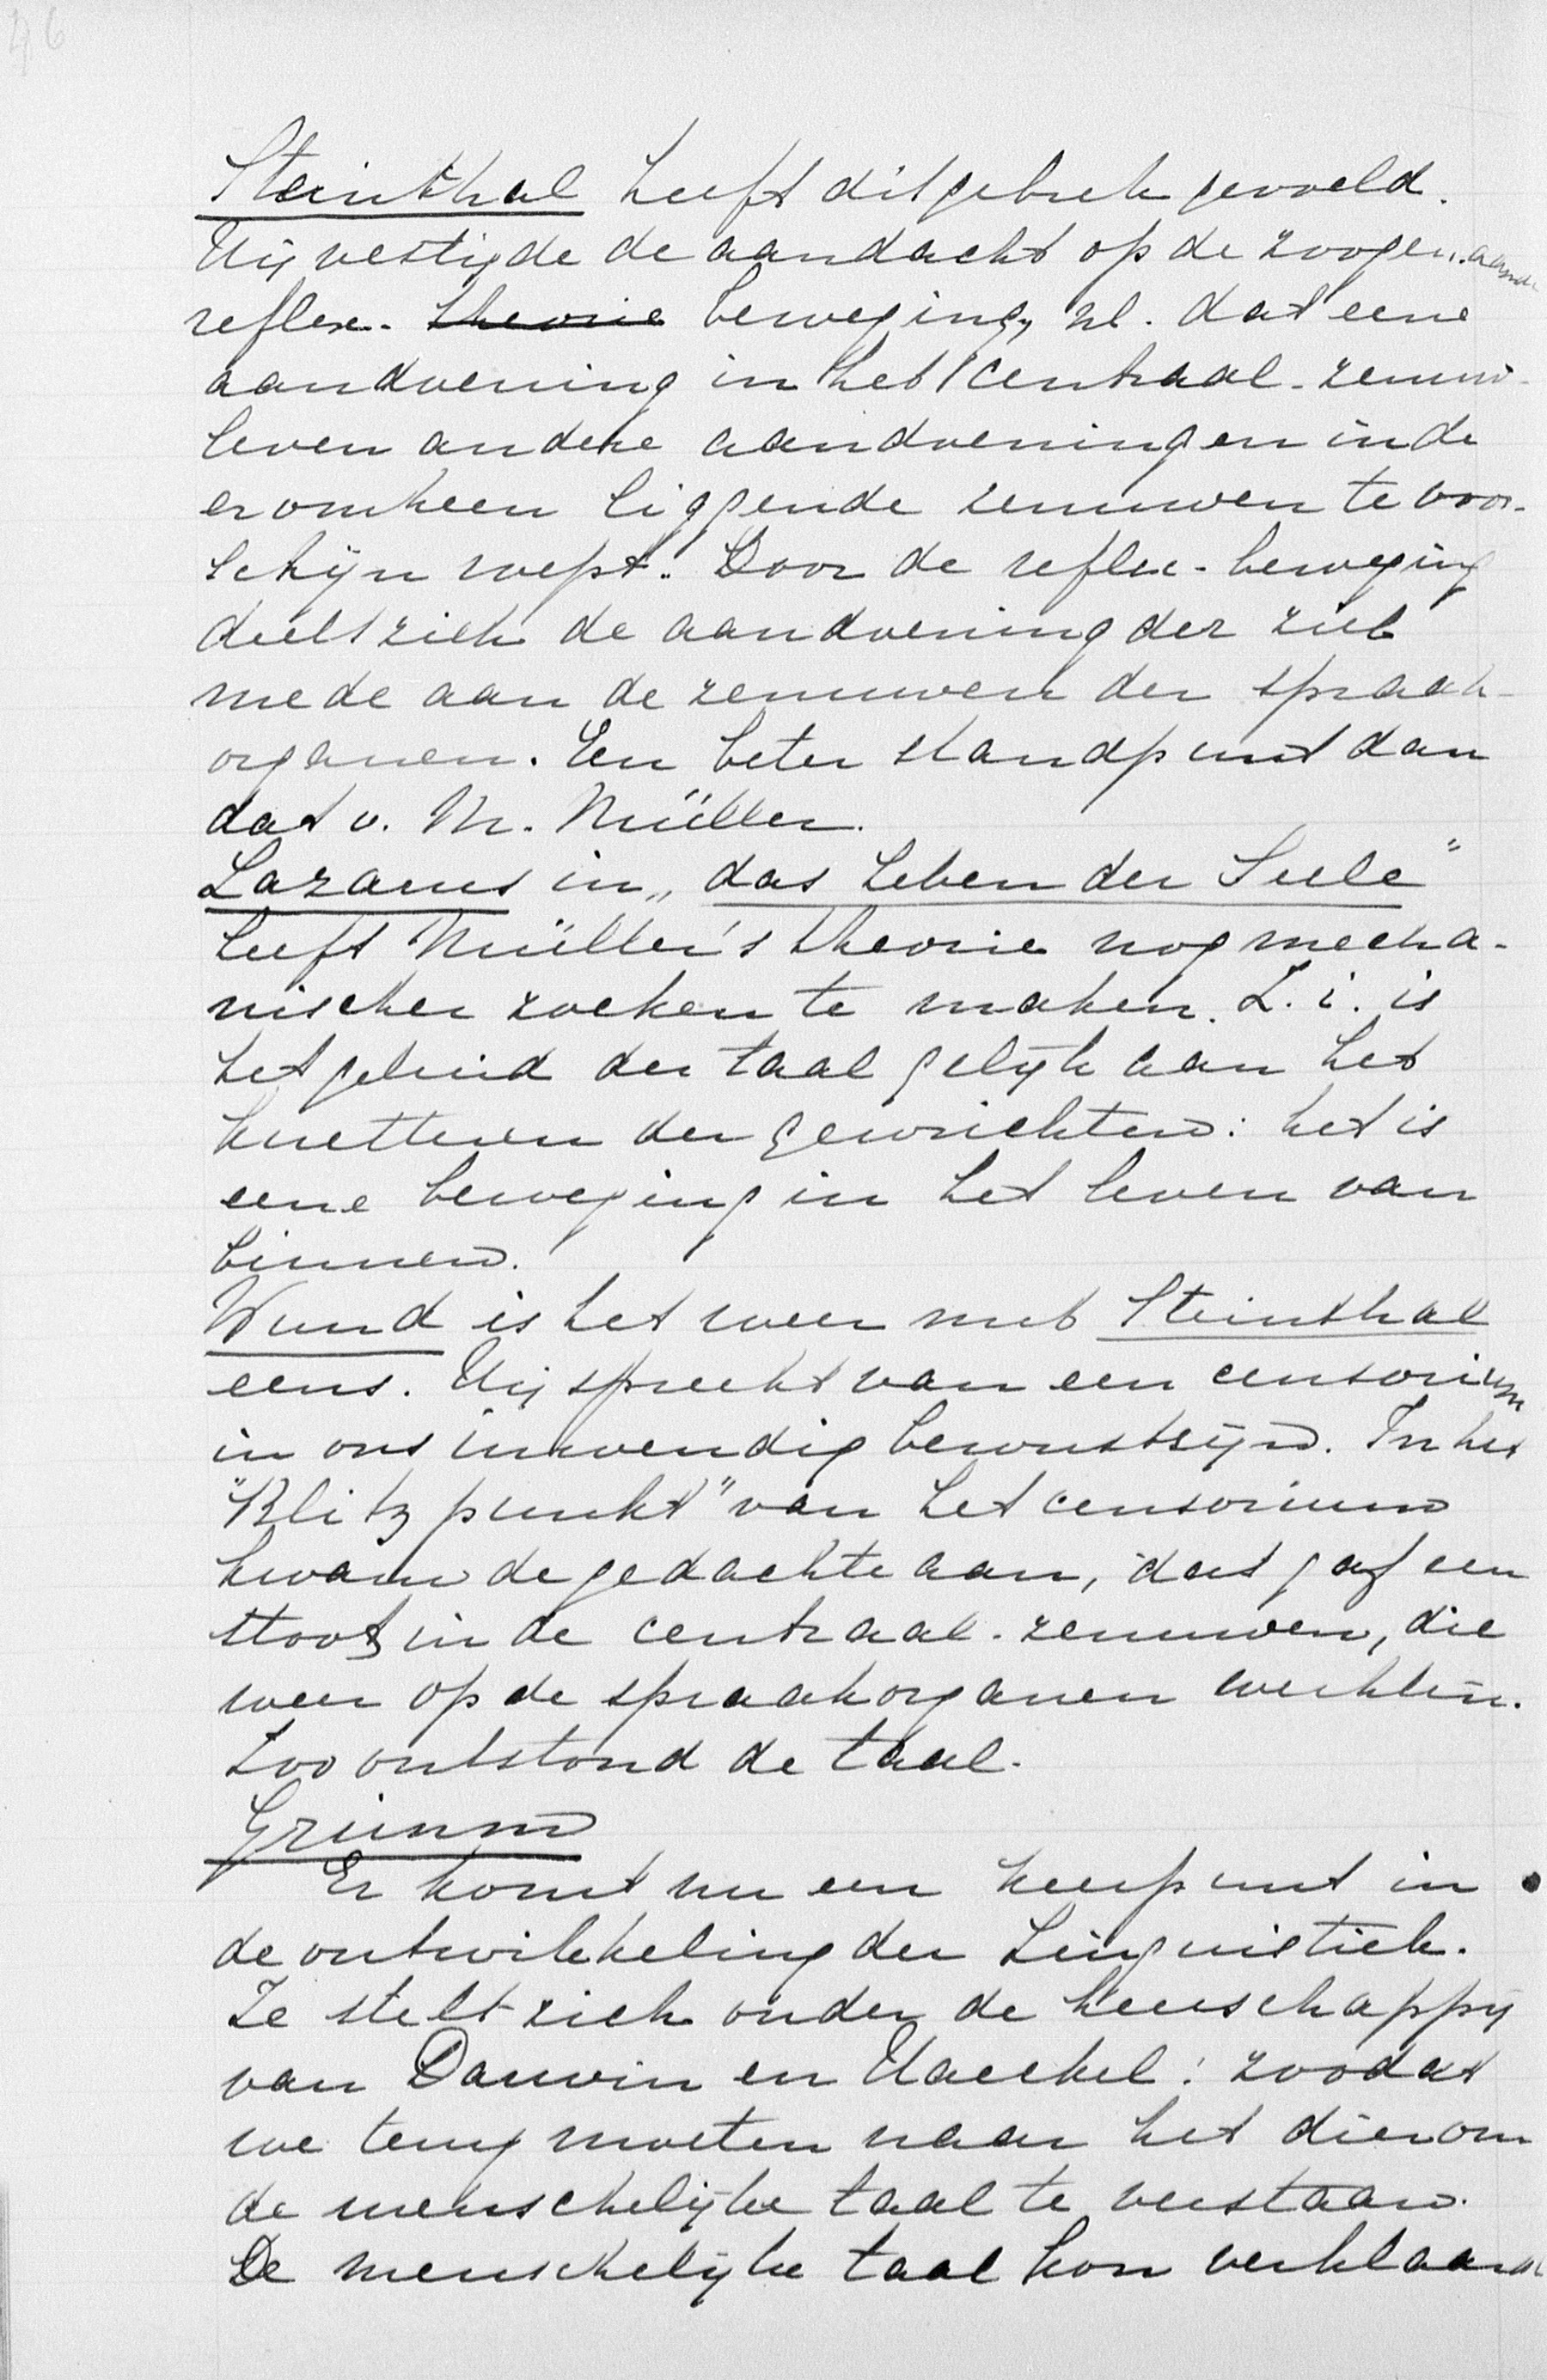 46
Steinthal heeft dit gebrek gevoeld.
Hij vestigde de aandacht op de zoogenaamde
reflex-theorie beweging, nl. dat eene
aandoening in het centraal-zenuw-
leven andere aandoeningen in de
eromheen liggende zenuwen te voor-
schijn roept. Door de reflex-beweging
deelt zich de aandoening der ziel
mede aan de zenuwen der spraak-
organen. Een beter standpunt dan
dat v. M. Müller.
Lazarus in „das Leben der Seele"
heeft Müller's theorie nog mecha-
nischer zoeken te maken. Z. i. is
het geluid der taal gelijk aan het
knetteren der gewrichten: het is
eene beweging in het leven van
binnen.
Wund is het weer met Steinthal
eens. Hij spreekt van een censorium
in ons inwendig bewustzijn. In het
"Blitzpunkt" van het censorium
kwam de gedachte aan, dat gaf een
stoot in de centraal-zenuwen, die
weer op de spraakorganen werkten.
Zoo ontstond de taal.
Grimm
Er komt nu een keerpunt in
de ontwikkeling der Linguistiek.
Ze stelt zich onder de heerschappij
van Darwin en Haeckel: zoodat
we terug moeten naar het dier om
de menschelijke taal te verstaan.
De menschelijke taal kon verklaard